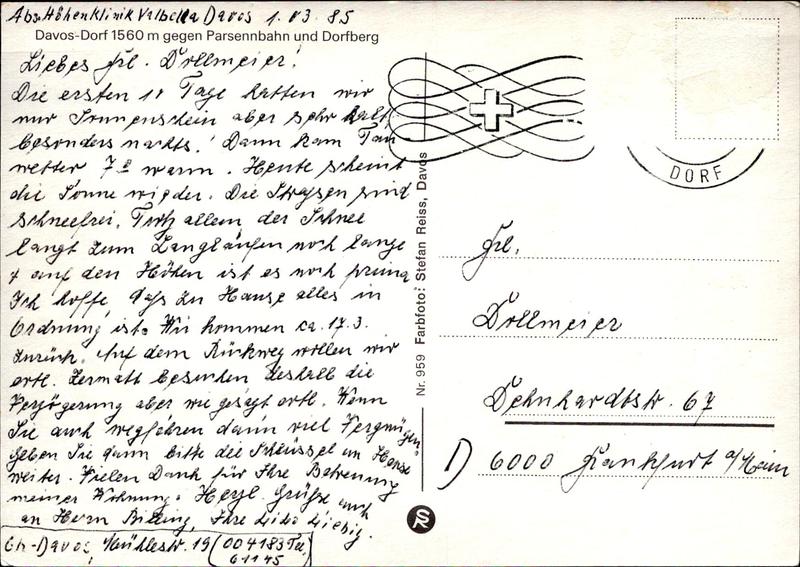 Abs. Höhenklinik Valbella Davos 1.03.85
Davos-Dorf 1560 m gegen Parsennbahn und Dorfberg
Liebes Frl. Dollmeier!
Die ersten 10 Tage hatten wir
nur Sonnenschein aber sehr kalt
besonders nachts! Dann kam Tau
wetter 7° warm. Heute scheint
die Sonne wieder. Die Strassen sind
schneefrei. Trotz allem der Schnee
langt zum Langlaufen noch lange
+ auf den Höhen ist es noch prima
Ich hoffe, dass zu Hause alles in
Ordnung ist. Wir kommen ca. 17.3.
zurück. Auf dem Rückweg wollen wir
evtl. Zermatt besuchen deshalb die
Verzögerung aber wie gesagt evtl. Wenn
Sie auch wegfahren dann viel Vergnügen
geben Sie dann bitte die Schlüssel an Hense
weiter. Vielen Dank für Ihre Betreuung
meiner Wohnung. Herzl. Grüsse auch
an Herrn Billing, Ihre Lilo Liebig.
Ch-Davos, Mühlestr. 19 (004183 Tel.
61145
Nr. 959 Farbfoto: Stefan Reiss, Davos
SR
DORF
Frl.
Dollmeier
Dehnhardtstr. 67
D 6000 Frankfurt a/Main